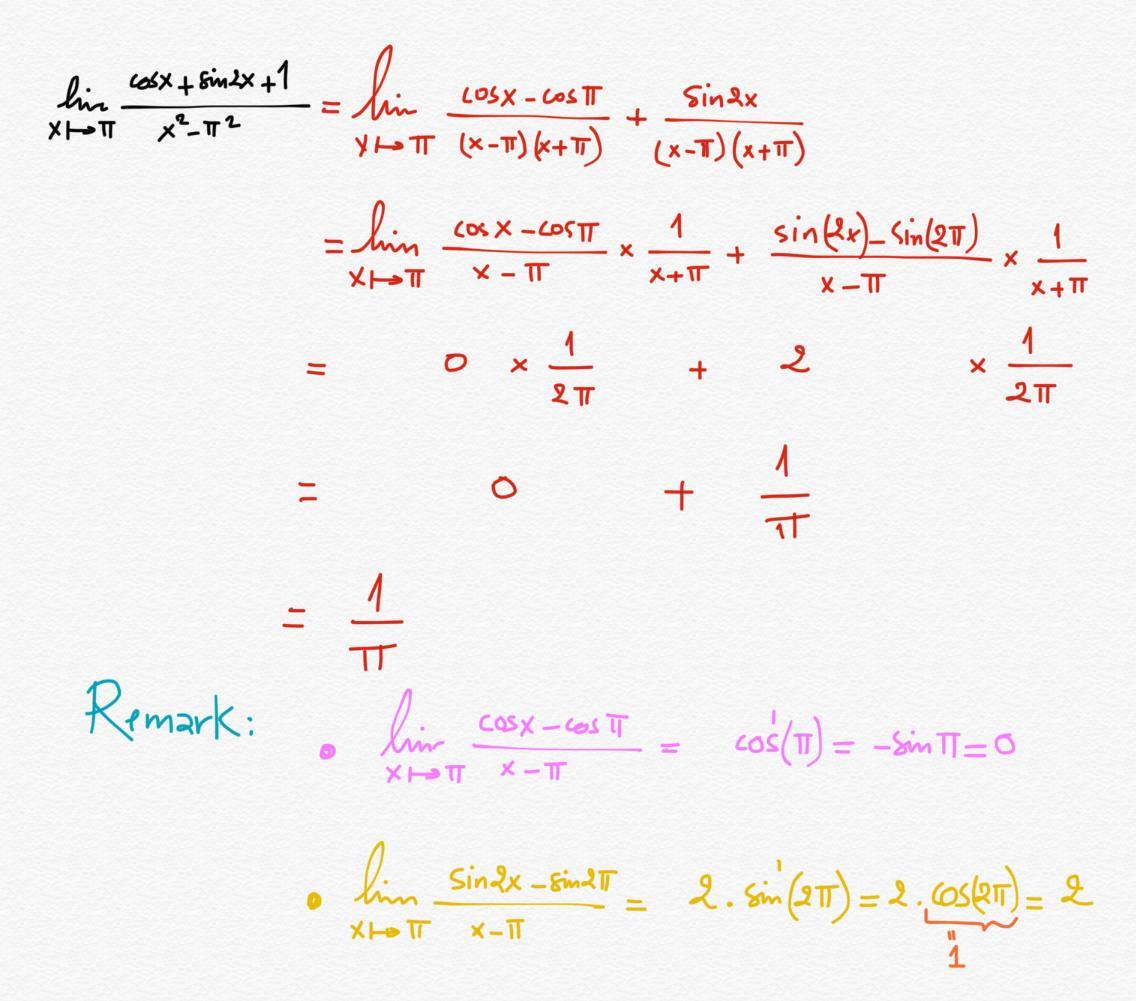 lim x↦π (cosx + sin2x + 1)/(x² - π²) = lim x↦π (cosx - cosπ)/((x-π)(x+π)) + sin2x/((x-π)(x+π))
= lim x↦π (cosx - cosπ)/(x - π) × 1/(x+π) + (sin(2x) - sin(2π))/(x - π) × 1/(x+π)
= 0 × 1/(2π) + 2 × 1/(2π)
= 0 + 1/π
= 1/π
Remark:
• lim x↦π (cosx - cosπ)/(x - π) = cos'(π) = -sinπ = 0
• lim x↦π (sin2x - sin2π)/(x - π) = 2 . sin'(2π) = 2 . cos(2π) = 2
" 1